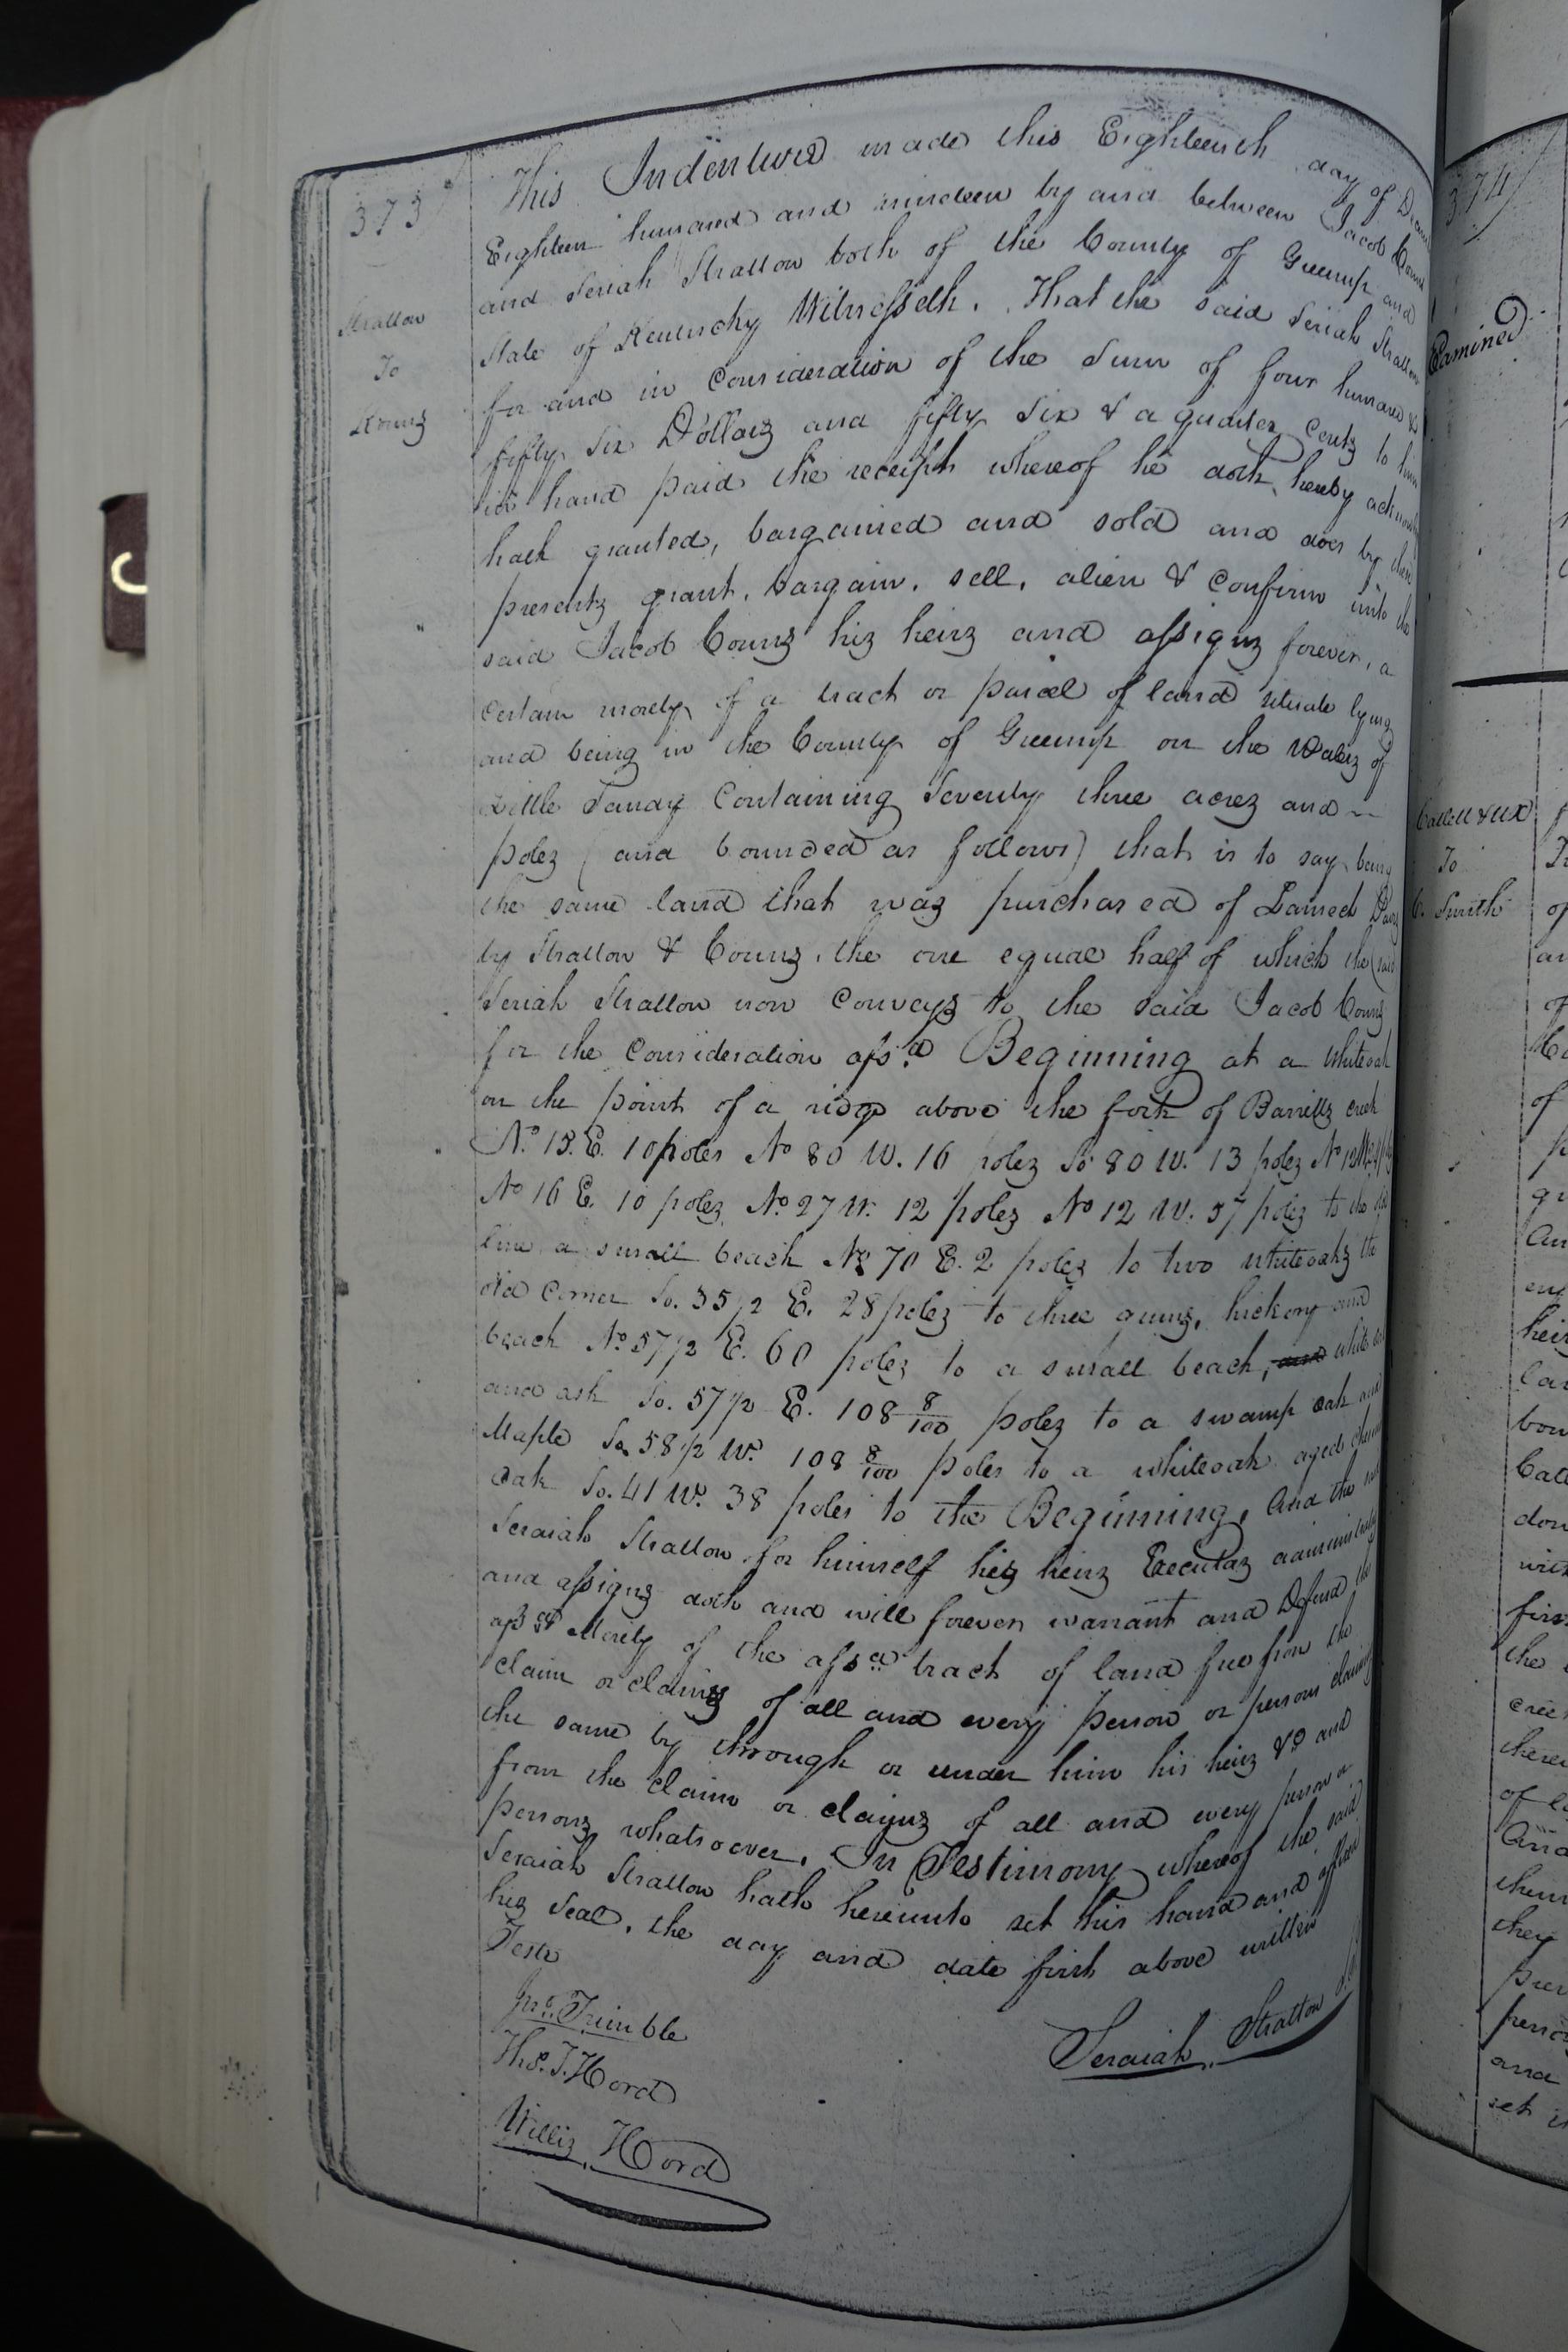 373
Stratton
To
Kouns
This Indenture made this Eighteenth day of
Eighteen hundred and nineteen by and between Jacob
and Seriah Stratton both of the County of Greenup and
State of Kentucky Witnesseth. That the said Seriah Stratton
for and in Consideration of the Sum of four hundred &
fifty six Dollars and fifty six & a quarter cents to him
in hand paid the receipt whereof he doth hereby
hath granted, bargained and sold and does by these
presents grant, bargain, sell, alien & Confirm unto the
said Jacob Couns his heirs and assigns forever, a
Certain moiety of a tract or parcel of land situate lying
and being in the County of Greenup on the Waters of
Little Sandy Containing Seventy three acres and
poles (and bounded as follows) that is to say being
the same land that was purchased of Lamech
by Stratton & Couns, the one equal half of which the said
Seriah Stratton now Conveys to the said Jacob Couns
for the Consideration afsd. Beginning at a Whiteoak
on the point of a ridge above the fork of Barretts creek
No. 15. E. 10 poles No 80 W. 16 poles So 80 W. 13 poles No 12 W.
No 16 E. 10 poles No. 27 W. 12 poles No 12 W. 57 poles to the
line a small beach No 70 E. 2 poles to two whiteoaks the
old Corner So. 35 1/2 E. 28 poles to three gums, hickory and
beach No. 57 1/2 E. 60 poles to a small beach, and
and ash So. 57 1/2 E. 108 8/100 poles to a swamp oak and
Maple So 58 1/2 W. 108 8/100 poles to a whiteoak
Oak So. 41 W. 38 poles to the Beginning, And the
Seraiah Stratton for himself his heirs Executors
and assigns doth and will forever warrant and Defend the
afsd Moiety of the afsd tract of land free from the
claim or claims of all and every person or persons claiming
the same by through or under him his heirs &c and
from the claim or claims of all and every person or
persons whatsoever. In Testimony whereof the said
Seraiah Stratton hath hereunto set his hand and
his Seal, the day and date first above written
Teste
Jno. Trimble
Thos. T. Hord
Willis Hord
Seraiah Stratton
374
Examined
To
Smith